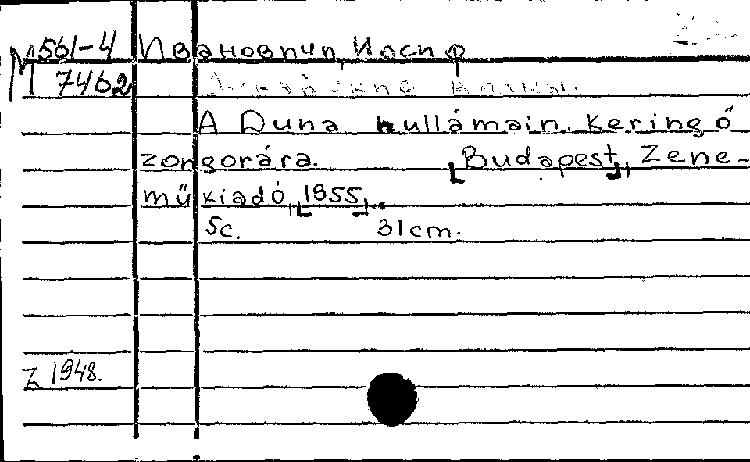 М 561-4 Ивановичи, Иосиф
7462
A Duna hullámain. Keringő
zongorára. [Budapest], Zene-
műkiadó, [1955].
5c. 31cm.
Z 1948.